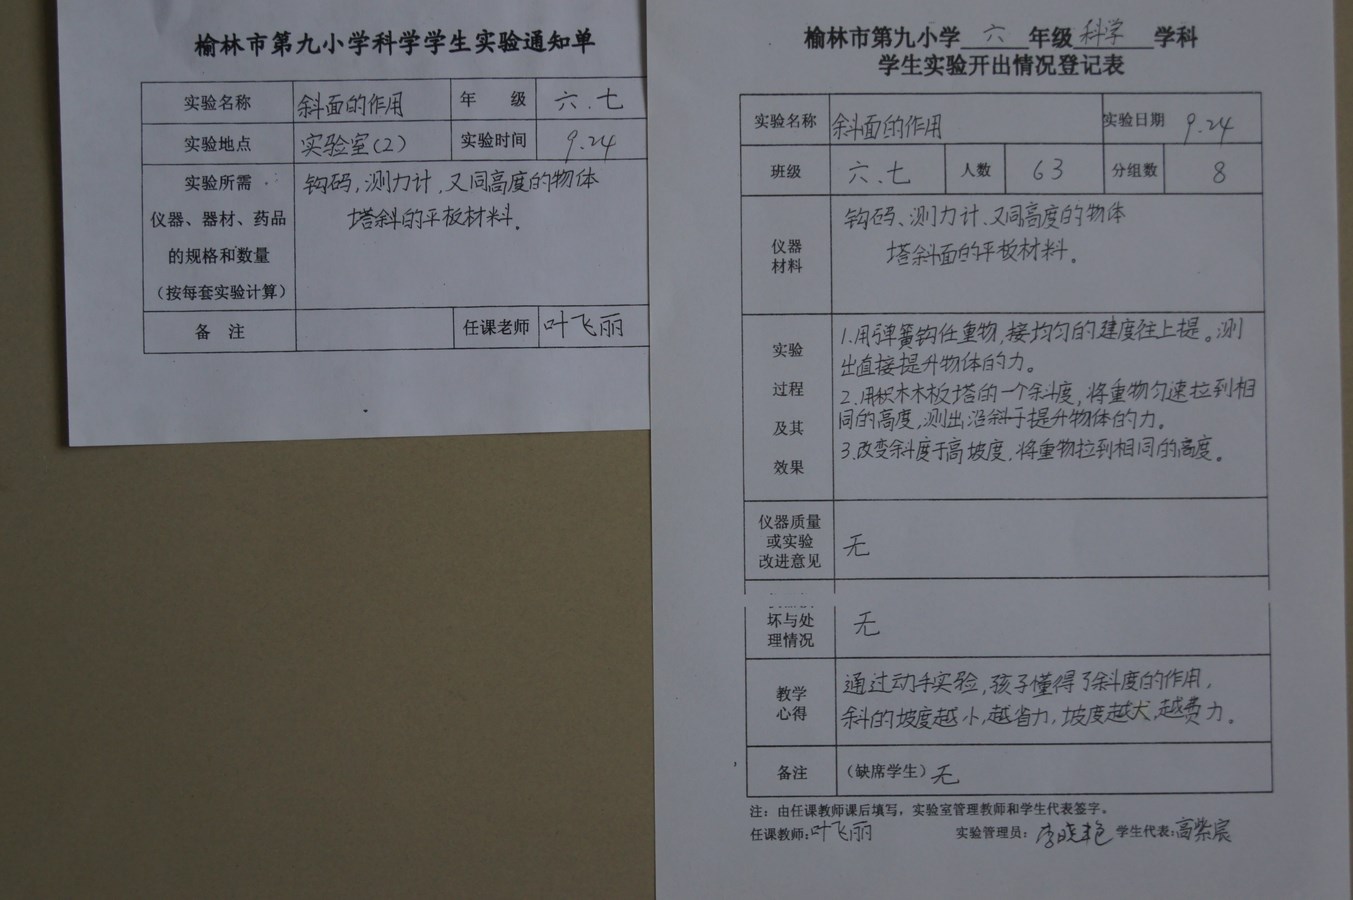 榆林市第九小学科学学生实验通知单
实验名称 斜面的作用 年 级 六.七
实验地点 实验室(2) 实验时间 9.24
实验所需
仪器、器材、药品
的规格和数量
（按每套实验计算）
钩码,测力计,又同高度的物体
塔斜的平板材料.
备 注 任课老师 叶飞丽
榆林市第九小学 六 年级 科学 学科
学生实验开出情况登记表
实验名称 斜面的作用 实验日期 9.24
班级 六.七 人数 63 分组数 8
仪器
材料
钩码、测力计、又同高度的物体
塔斜面的平板材料。
实验
过程
及其
效果
1.用弹簧钩住重物,接均匀的建度往上提。测
出直接提升物体的力。
2.用积木木板塔的一个斜度,将重物匀速拉到相
同的高度,测出沿斜于提升物体的力。
3.改变斜度于高坡度,将重物拉到相同的高度。
仪器质量
或实验
改进意见
无
坏与处
理情况
无
教学
心得
通过动手实验,孩子懂得了斜度的作用,
斜的坡度越小,越省力,坡度越犬,越费力。
备注 （缺席学生）无
注：由任课教师课后填写，实验室管理教师和学生代表签字。
任课教师:叶飞丽 实验管理员：李晓艳 学生代表:高紫宸